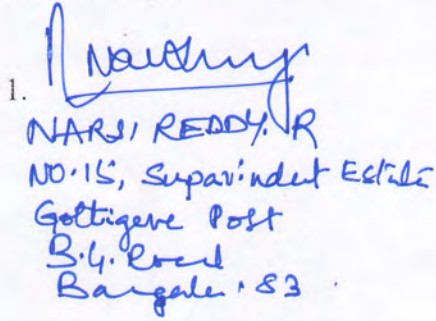 1.
NARSI REDDY. R
NO.15, Supavindent Estate
Gottigeve Post
B.G. Road
Bangalu. 83.